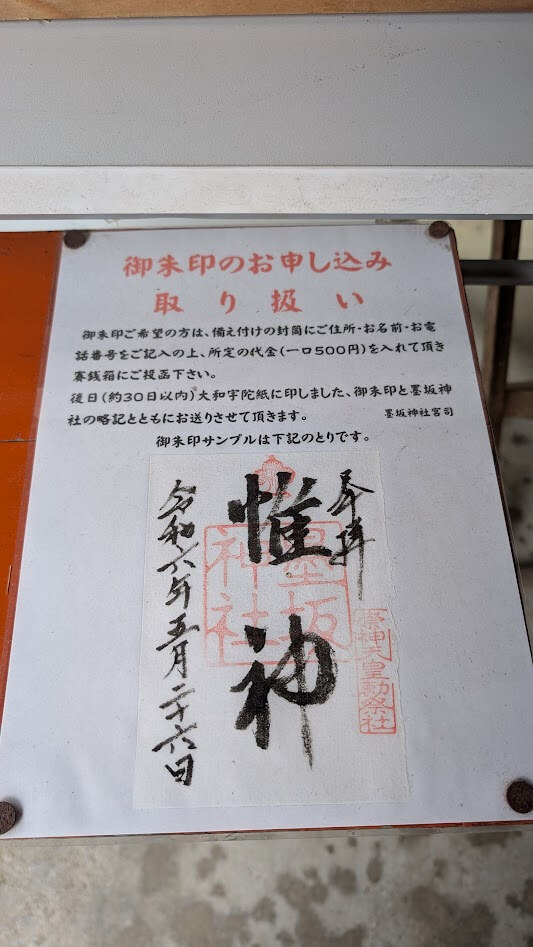 御朱印のお申し込み
取り扱い
御朱印ご希望の方は、備え付けの封筒にご住所・お名前・お電
話番号をご記入の上、所定の代金(一口500円)を入れて頂き
賽銭箱にご投函下さい。
後日(約30日以内)大和宇陀紙に印しました、御朱印と墨坂神
社の略記とともにお送りさせて頂きます。
墨坂神社宮司
御朱印サンプルは下記のとりです。
奉拝
惟神
墨坂神社
崇神天皇勅祭社
令和六年五月二十六日